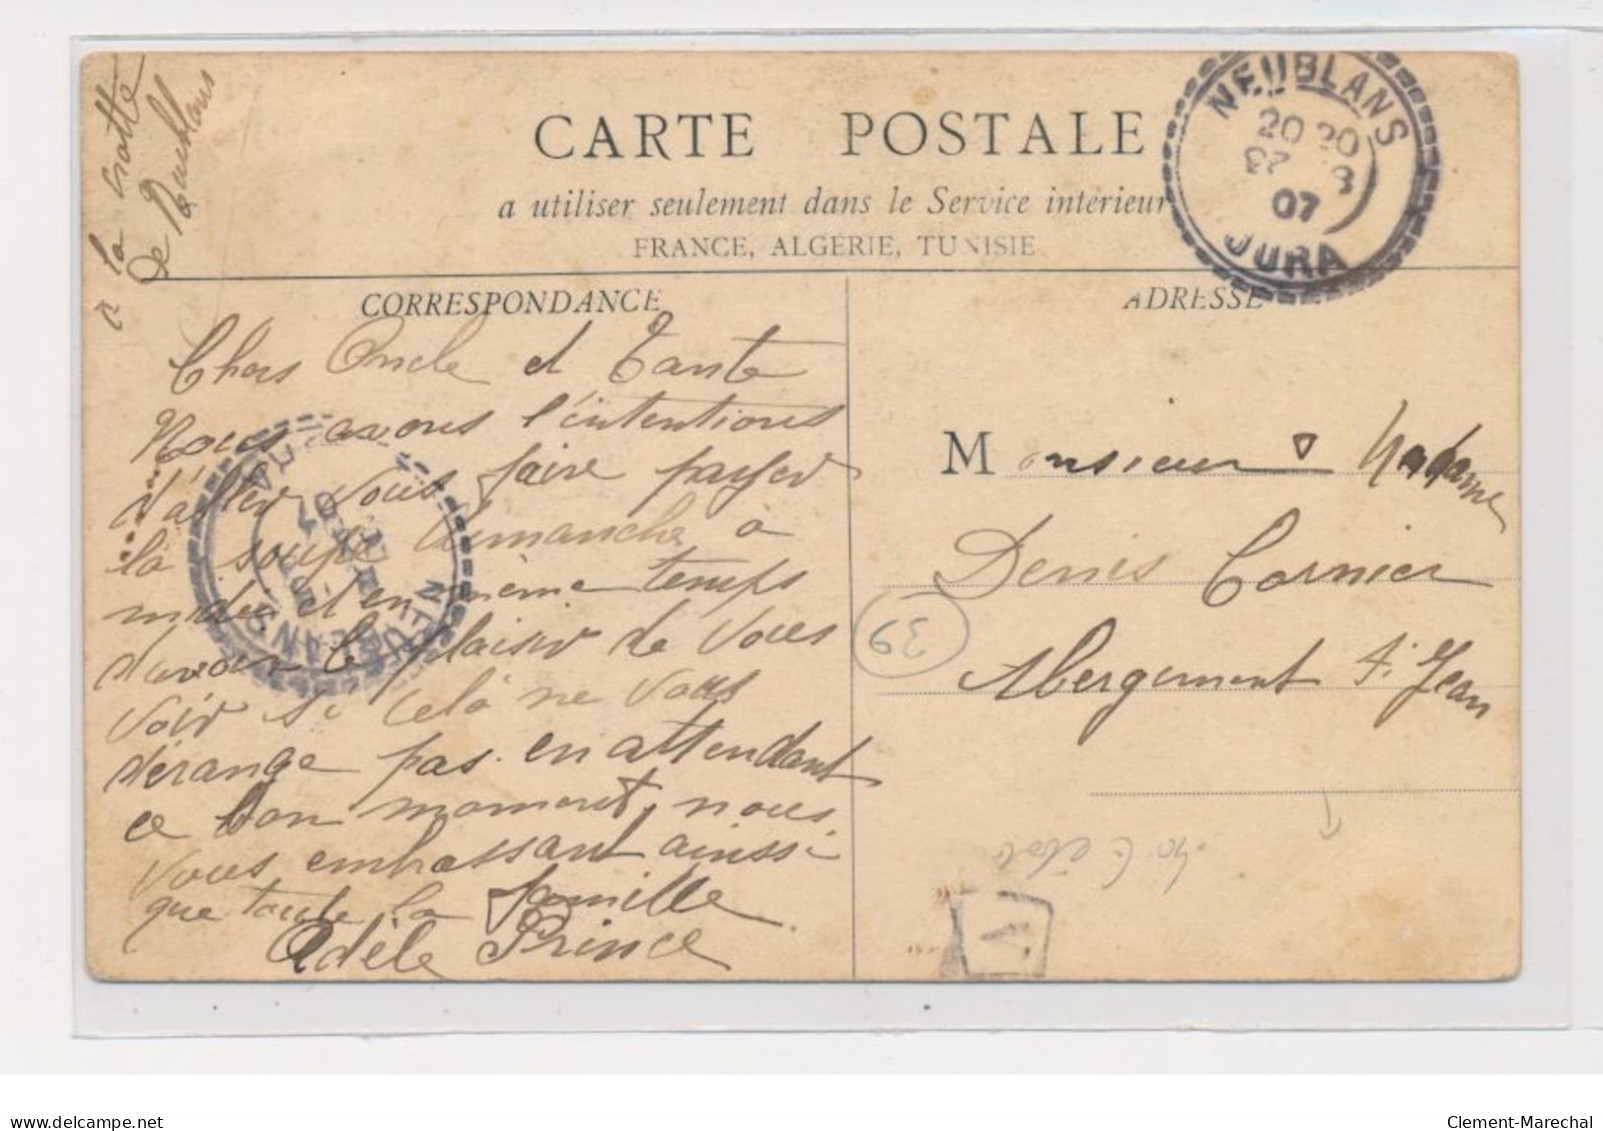 CARTE POSTALE
a utiliser seulement dans le Service intérieur
FRANCE, ALGÉRIE, TUNISIE
NEUBLANS
20 20
8
07
JURA
CORRESPONDANCE
ADRESSE
a la crotte
de Neublans
Chers Oncle et Tante
Nous avons l'intentions
d'aller vous faire payser
la soupe dimanche à
midi et en même temps
d'avoir le plaisir de vous
voir si celà ne vous
dérange pas. en attendant
ce bon moment, nous
vous embrassant ainssi
que toute la famille
Adèle Prince
Monsieur Madame
Denis Cornier
Abergement St Jean
39
NEUBLANS
Clement-Marechal
delcampe.net